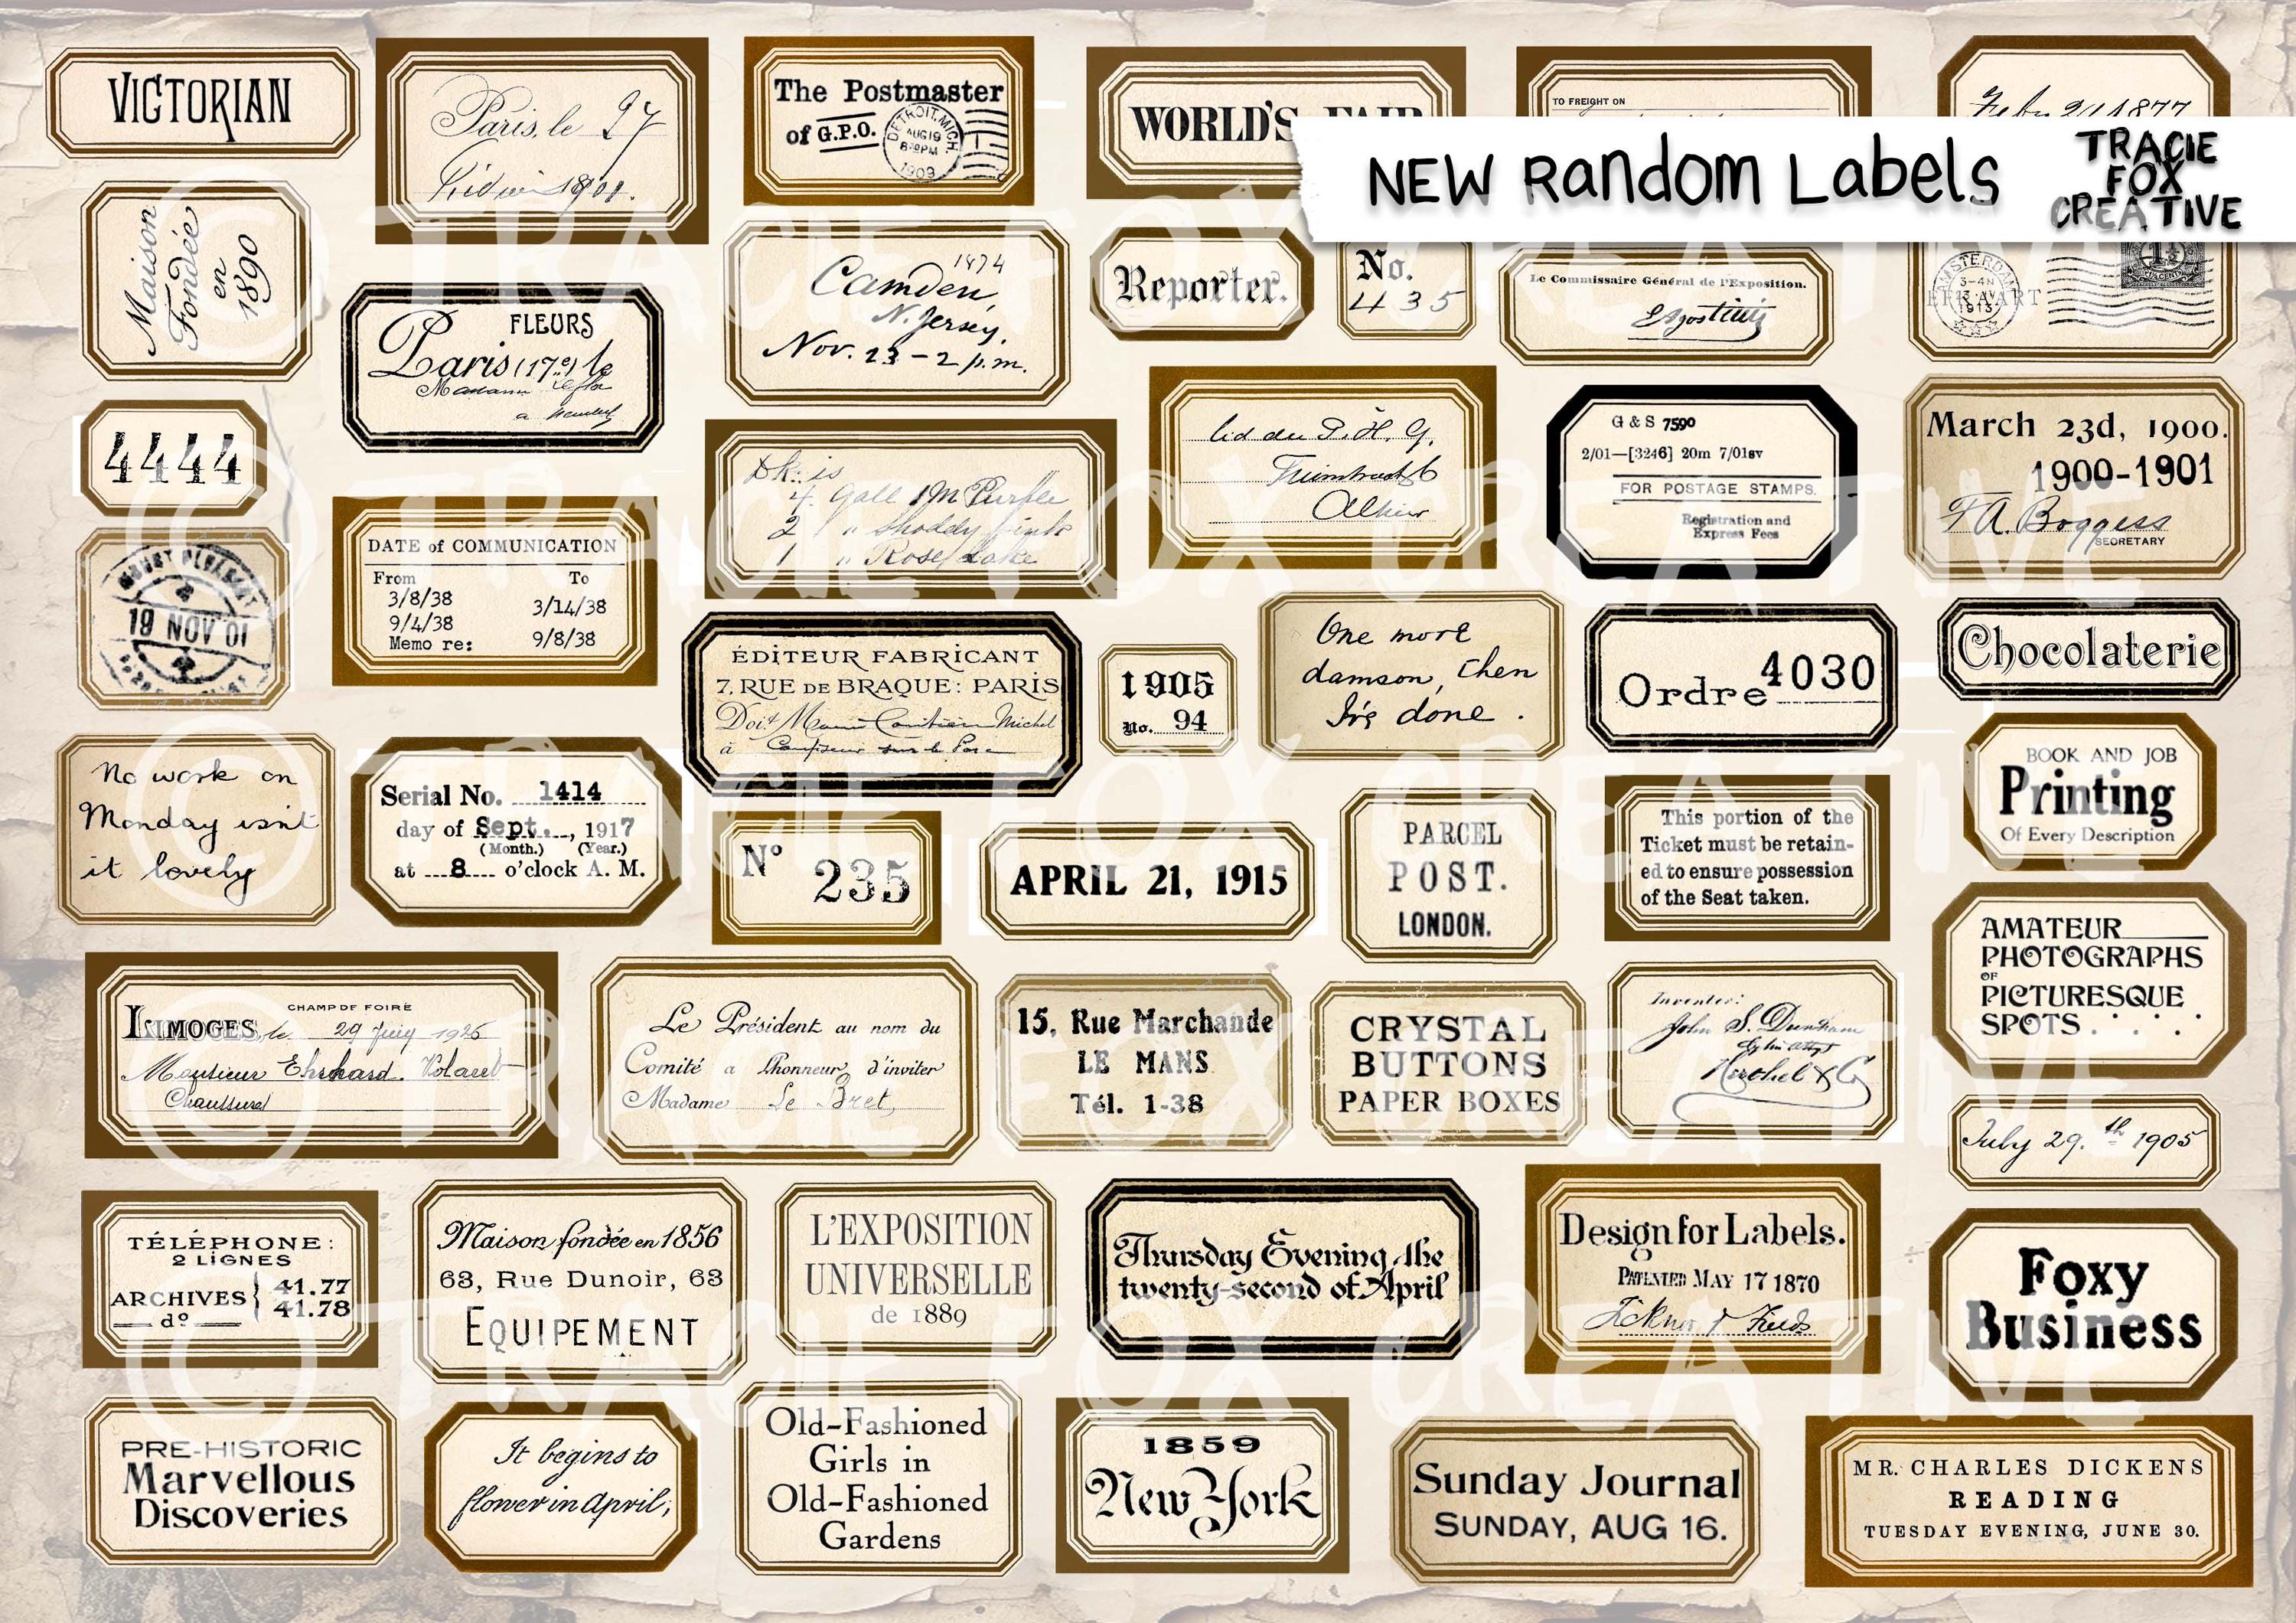 VICTORIAN
Paris, le 27
The Postmaster
of G.P.O.
DETROIT, MICH.
AUG 19
8 30 PM
1909
WORLD'S FAIR
TO FREIGHT ON
Feby 1877
NEW Random Labels
TRACIE
FOX
CREATIVE
Maison
Fondée
en
1890
FLEURS
Paris (17e) le
Madame
a
1874
Camden,
N. Jersey,
Nov. 23 - 2 p.m.
Reporter.
No.
435
Le Commissaire Général de l'Exposition.
AMSTERDAM
3-4N
1913
4444
DATE of COMMUNICATION
From To
3/8/38 3/14/38
9/4/38
Memo re: 9/8/38
4 Gall Purple
2 " Shoddy pink
1 " Rose Lake
G & S 7590
2/01—[3246] 20m 7/01sv
FOR POSTAGE STAMPS.
Registration and
Express Fees
March 23d, 1900.
1900-1901
F.A. Boggess
SECRETARY
19 NOV 01
ÉDITEUR FABRICANT
7, RUE DE BRAQUE: PARIS
Doit Michel
à
1905
No. 94
One more
damson, then
I's done.
Ordre 4030
Chocolaterie
No work on
Monday isn't
it lovely
Serial No. 1414
day of Sept., 1917
(Month.) (Year.)
at 8 o'clock A. M.
No 235
APRIL 21, 1915
PARCEL
POST.
LONDON.
This portion of the
Ticket must be retain-
ed to ensure possession
of the Seat taken.
BOOK AND JOB
Printing
Of Every Description
AMATEUR
PHOTOGRAPHS
OF
PICTURESQUE
SPOTS . . . . .
CHAMP DE FOIRE
LIMOGES, le 29 1926
Monsieur Ehrhard
Chaussures
Le Président au nom du
Comité a l'honneur d'inviter
Madame Le Bret,
15, Rue Marchande
LE MANS
Tél. 1-38
CRYSTAL
BUTTONS
PAPER BOXES
Inventor:
John S. Dunham
July 29.th 1905
TÉLÉPHONE:
2 LIGNES
ARCHIVES { 41.77
do 41.78
Maison fondée en 1856
63, Rue Dunoir, 63
EQUIPEMENT
L'EXPOSITION
UNIVERSELLE
de 1889
Thursday Evening the
twenty-second of April
Design for Labels.
PATENTED MAY 17 1870
Foxy
Business
PRE-HISTORIC
Marvellous
Discoveries
It begins to
flower in April;
Old-Fashioned
Girls in
Old-Fashioned
Gardens
1859
New York
Sunday Journal
SUNDAY, AUG 16.
MR. CHARLES DICKENS
READING
TUESDAY EVENING, JUNE 30.
© TRACIE FOX CREATIVE
© TRACIE FOX CREATIVE
© TRACIE FOX CREATIVE
© TRACIE FOX CREATIVE
© TRACIE FOX CREATIVE